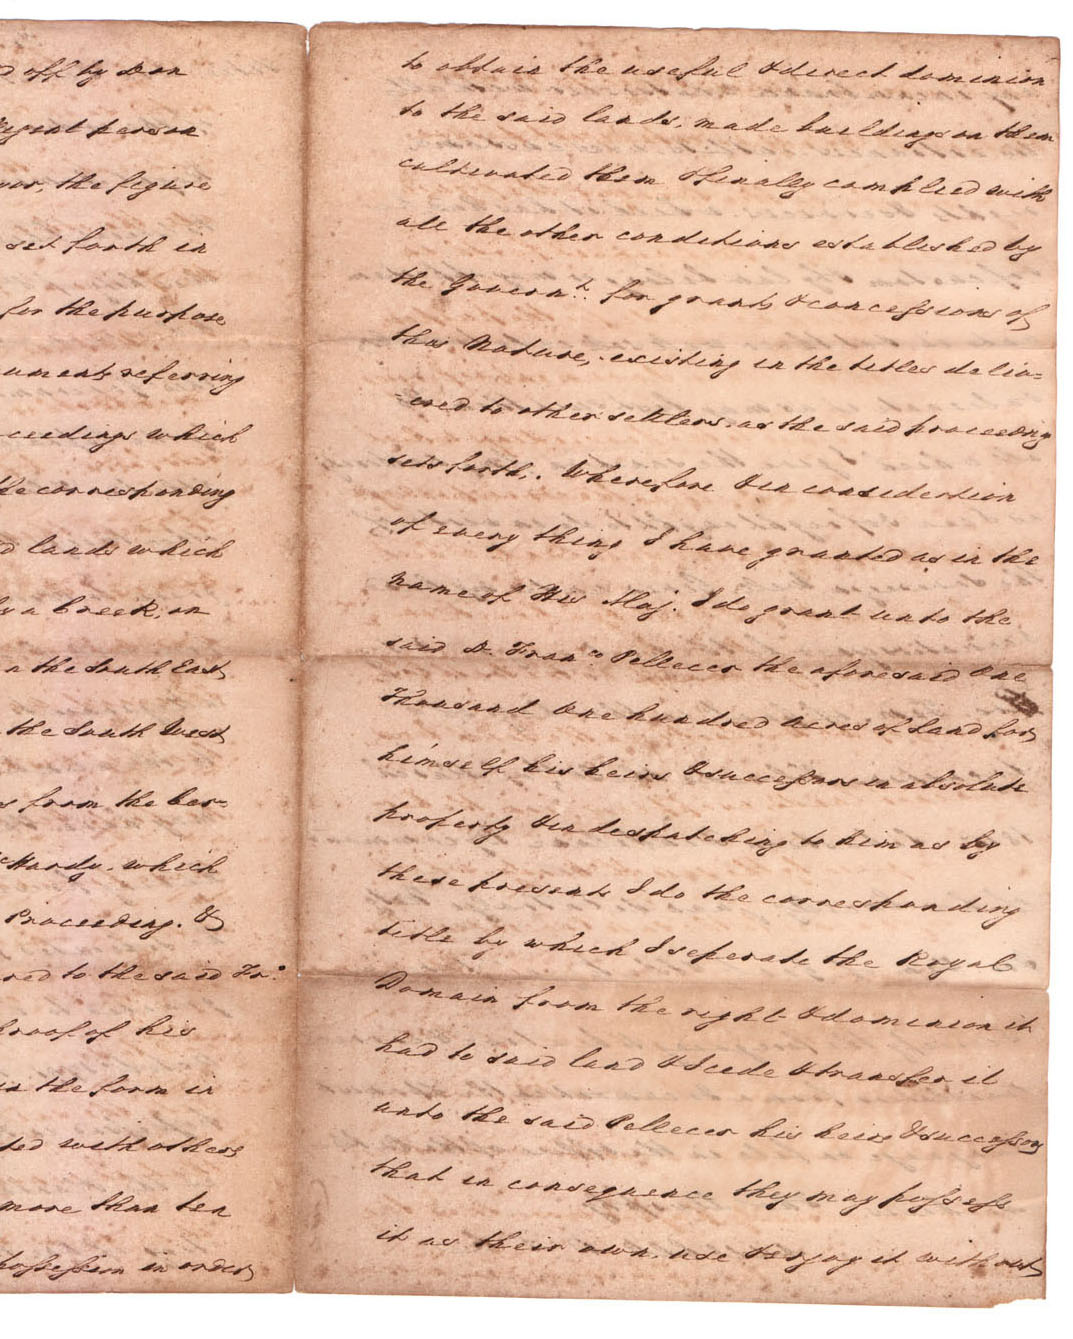 off by Don
person
the figure
set forth in
for the purpose
referring
which
the corresponding
lands which
a Creek, on
the South East
the South West
from the bor=
Hardy. which
Proceeding. &
to the said Fr.o
proof of his
in the form in
with others
more than ten
possession in order
to obtain the useful & derect dominion
to the said lands, made buildings on them
cultivated them & finally complied with
all the other conditions established by
the Governt. for grants & concessions of
thas Nature, existing in the titles deliv=
=ered to other settlers as the said proceeding
sets forth,. Wherefore & in considertion
of every thing I have granted as in the
name of His Maj. I do grant unto the
said D. Franco Pellecer the aforesaid One
Thousand One hundred acres of land for
himself his heirs & successors in absolute
property & in despatching to him as by
these presents I do the corresponding
title by which I seperate the Royal
Domain from the right & dominion it
had to said land & I cede & transfer it
unto the said Pellecer his heirs & successors
that in consequence they may possess
it as their own, use & enjoy it without